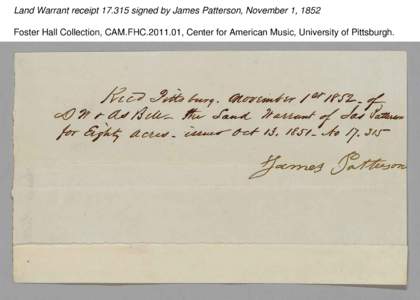 Land Warrant receipt 17.315 signed by James Patterson, November 1, 1852
Foster Hall Collection, CAM.FHC.2011.01, Center for American Music, University of Pittsburgh.
Rec'd Pittsburg. November 1st 1852 - of
D N & A S Bell - the Land Warrant of Jas Patterson
for Eighty Acres - issued Oct 13. 1851 - No 17.315
James Patterson